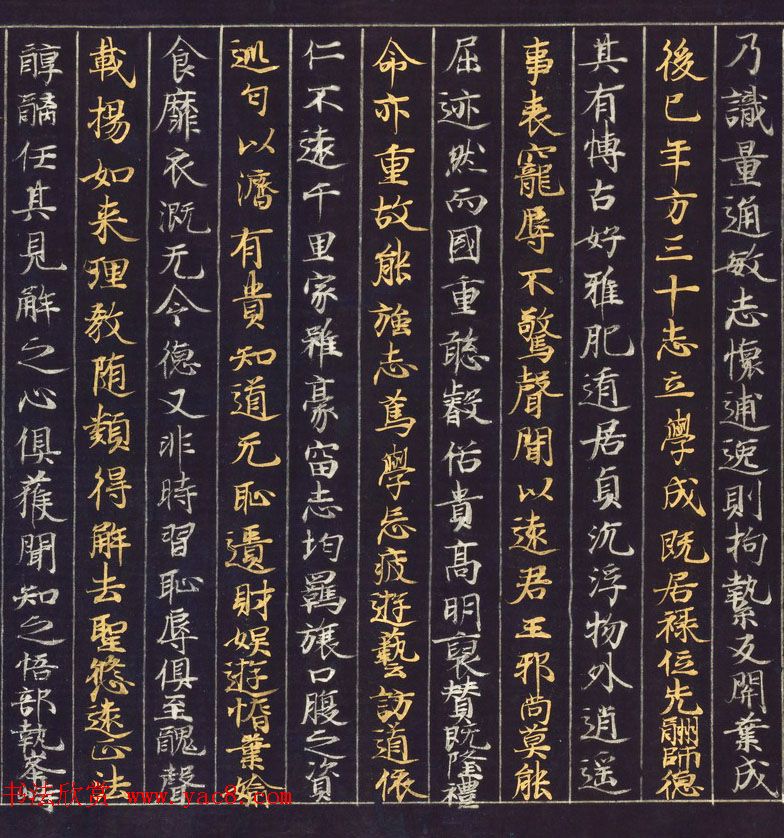 乃識量通敏志懷逋逸則拘縶反開葉成
後已年方三十志立學成既居祿位先酬師德
其有博古好雅肥遁居貞沉浮物外逍遥
事表寵辱不驚聲聞以遠君王邪尚莫能
屈迹然而國重聰叡俗貴高明裒贊既隆禮
命亦重故能強志篤學忘疲遊藝訪道依
仁不遠千里家雖豪富志均羈旅口腹之資
巡匃以濟有貴知道无恥遺財娛遊惰業媮
食靡衣溉无令德又非時習恥辱俱至醜聲
載揚如来理教随類得解去聖悠遠正法
醇醨任其見解之心俱獲聞知之悟部執峯峙
书法欣赏 www.yac8.com